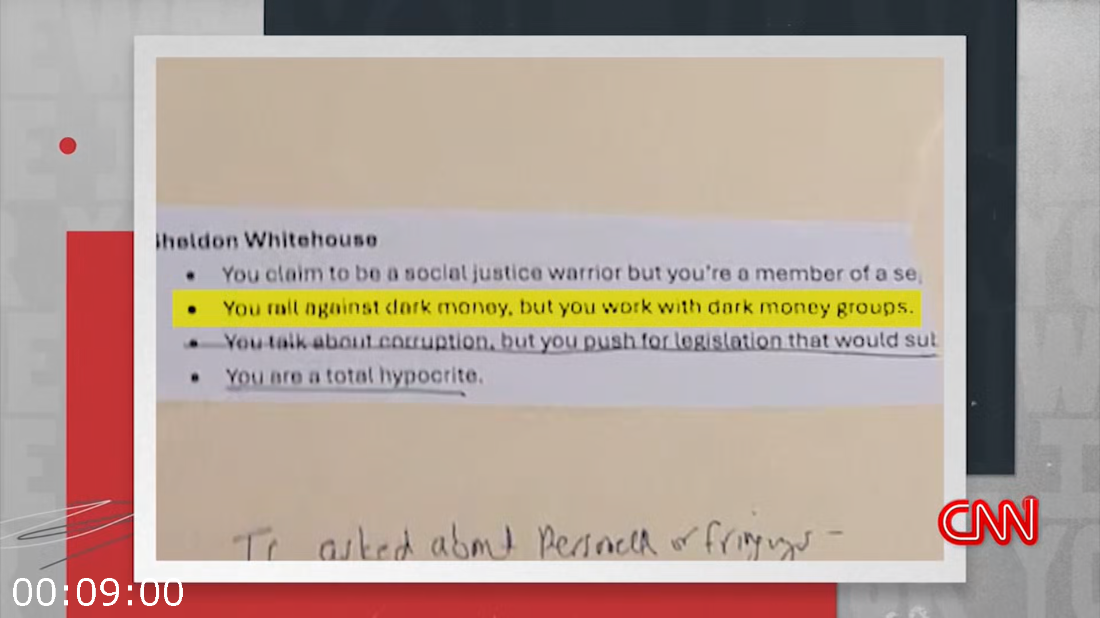 Sheldon Whitehouse
• You claim to be a social justice warrior but you're a member of a se
• You rail against dark money, but you work with dark money groups.
• You talk about corruption, but you push for legislation that would sub
• You are a total hypocrite.
asked about Personnel or firings -
CNN
00:09:00